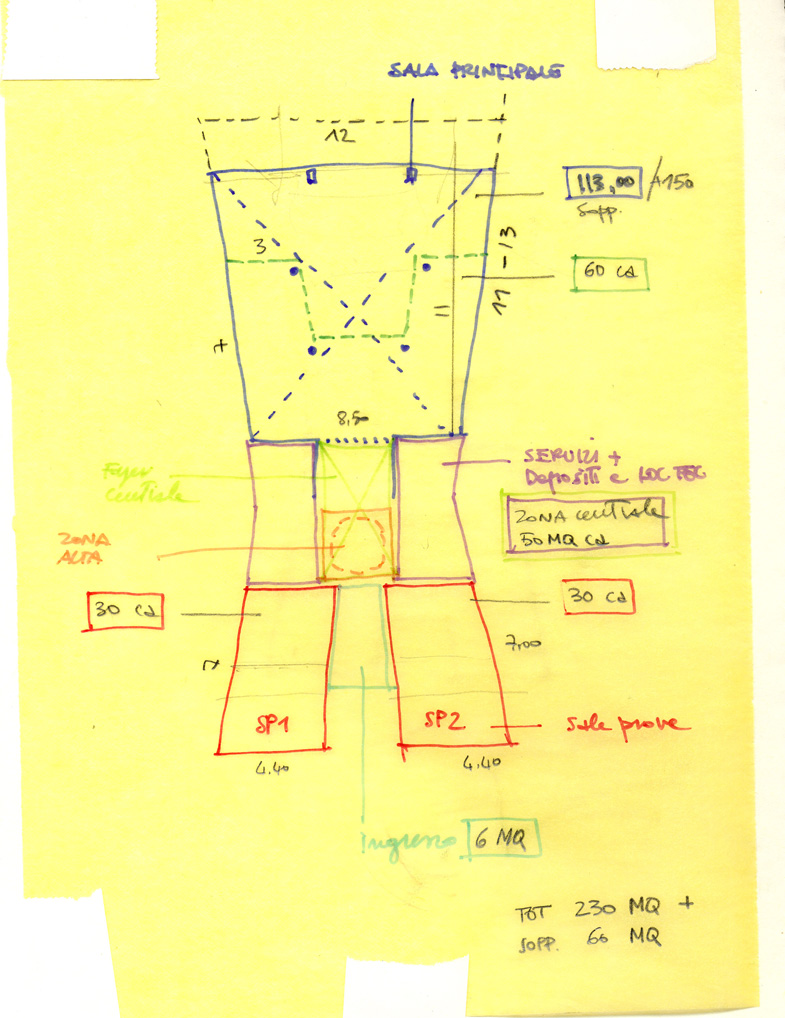 SALA PRINCIPALE
12
113,00 /+150
Sopp.
3
11 - 13
60 ca
11
7
8,50
SERVIZI +
Depositi e LOC TEC
Foyer
centrale
ZONA centrale
50 MQ ca
ZONA
ALTA
30 ca
30 ca
7,00
7
SP1
SP2
Sale prove
4.40
4.40
Ingresso
6 MQ
TOT 230 MQ +
SOPP. 60 MQ